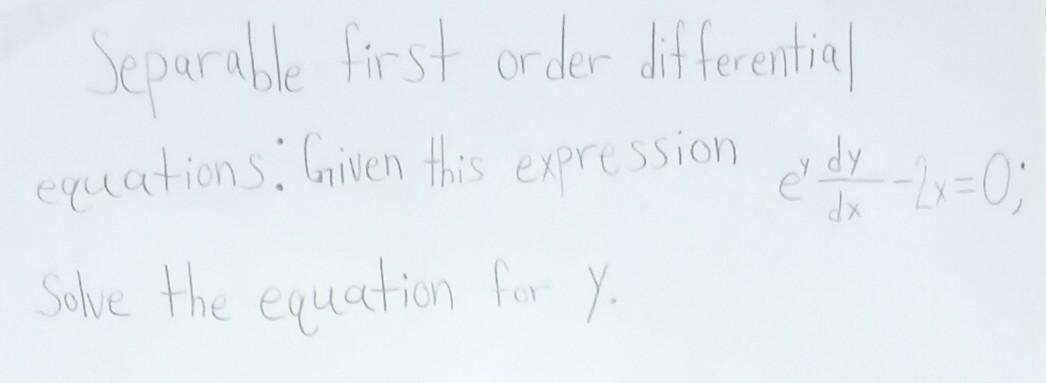 Separable first order differential
equations: Given this expression e^y dy/dx -2x=0;
Solve the equation for y.